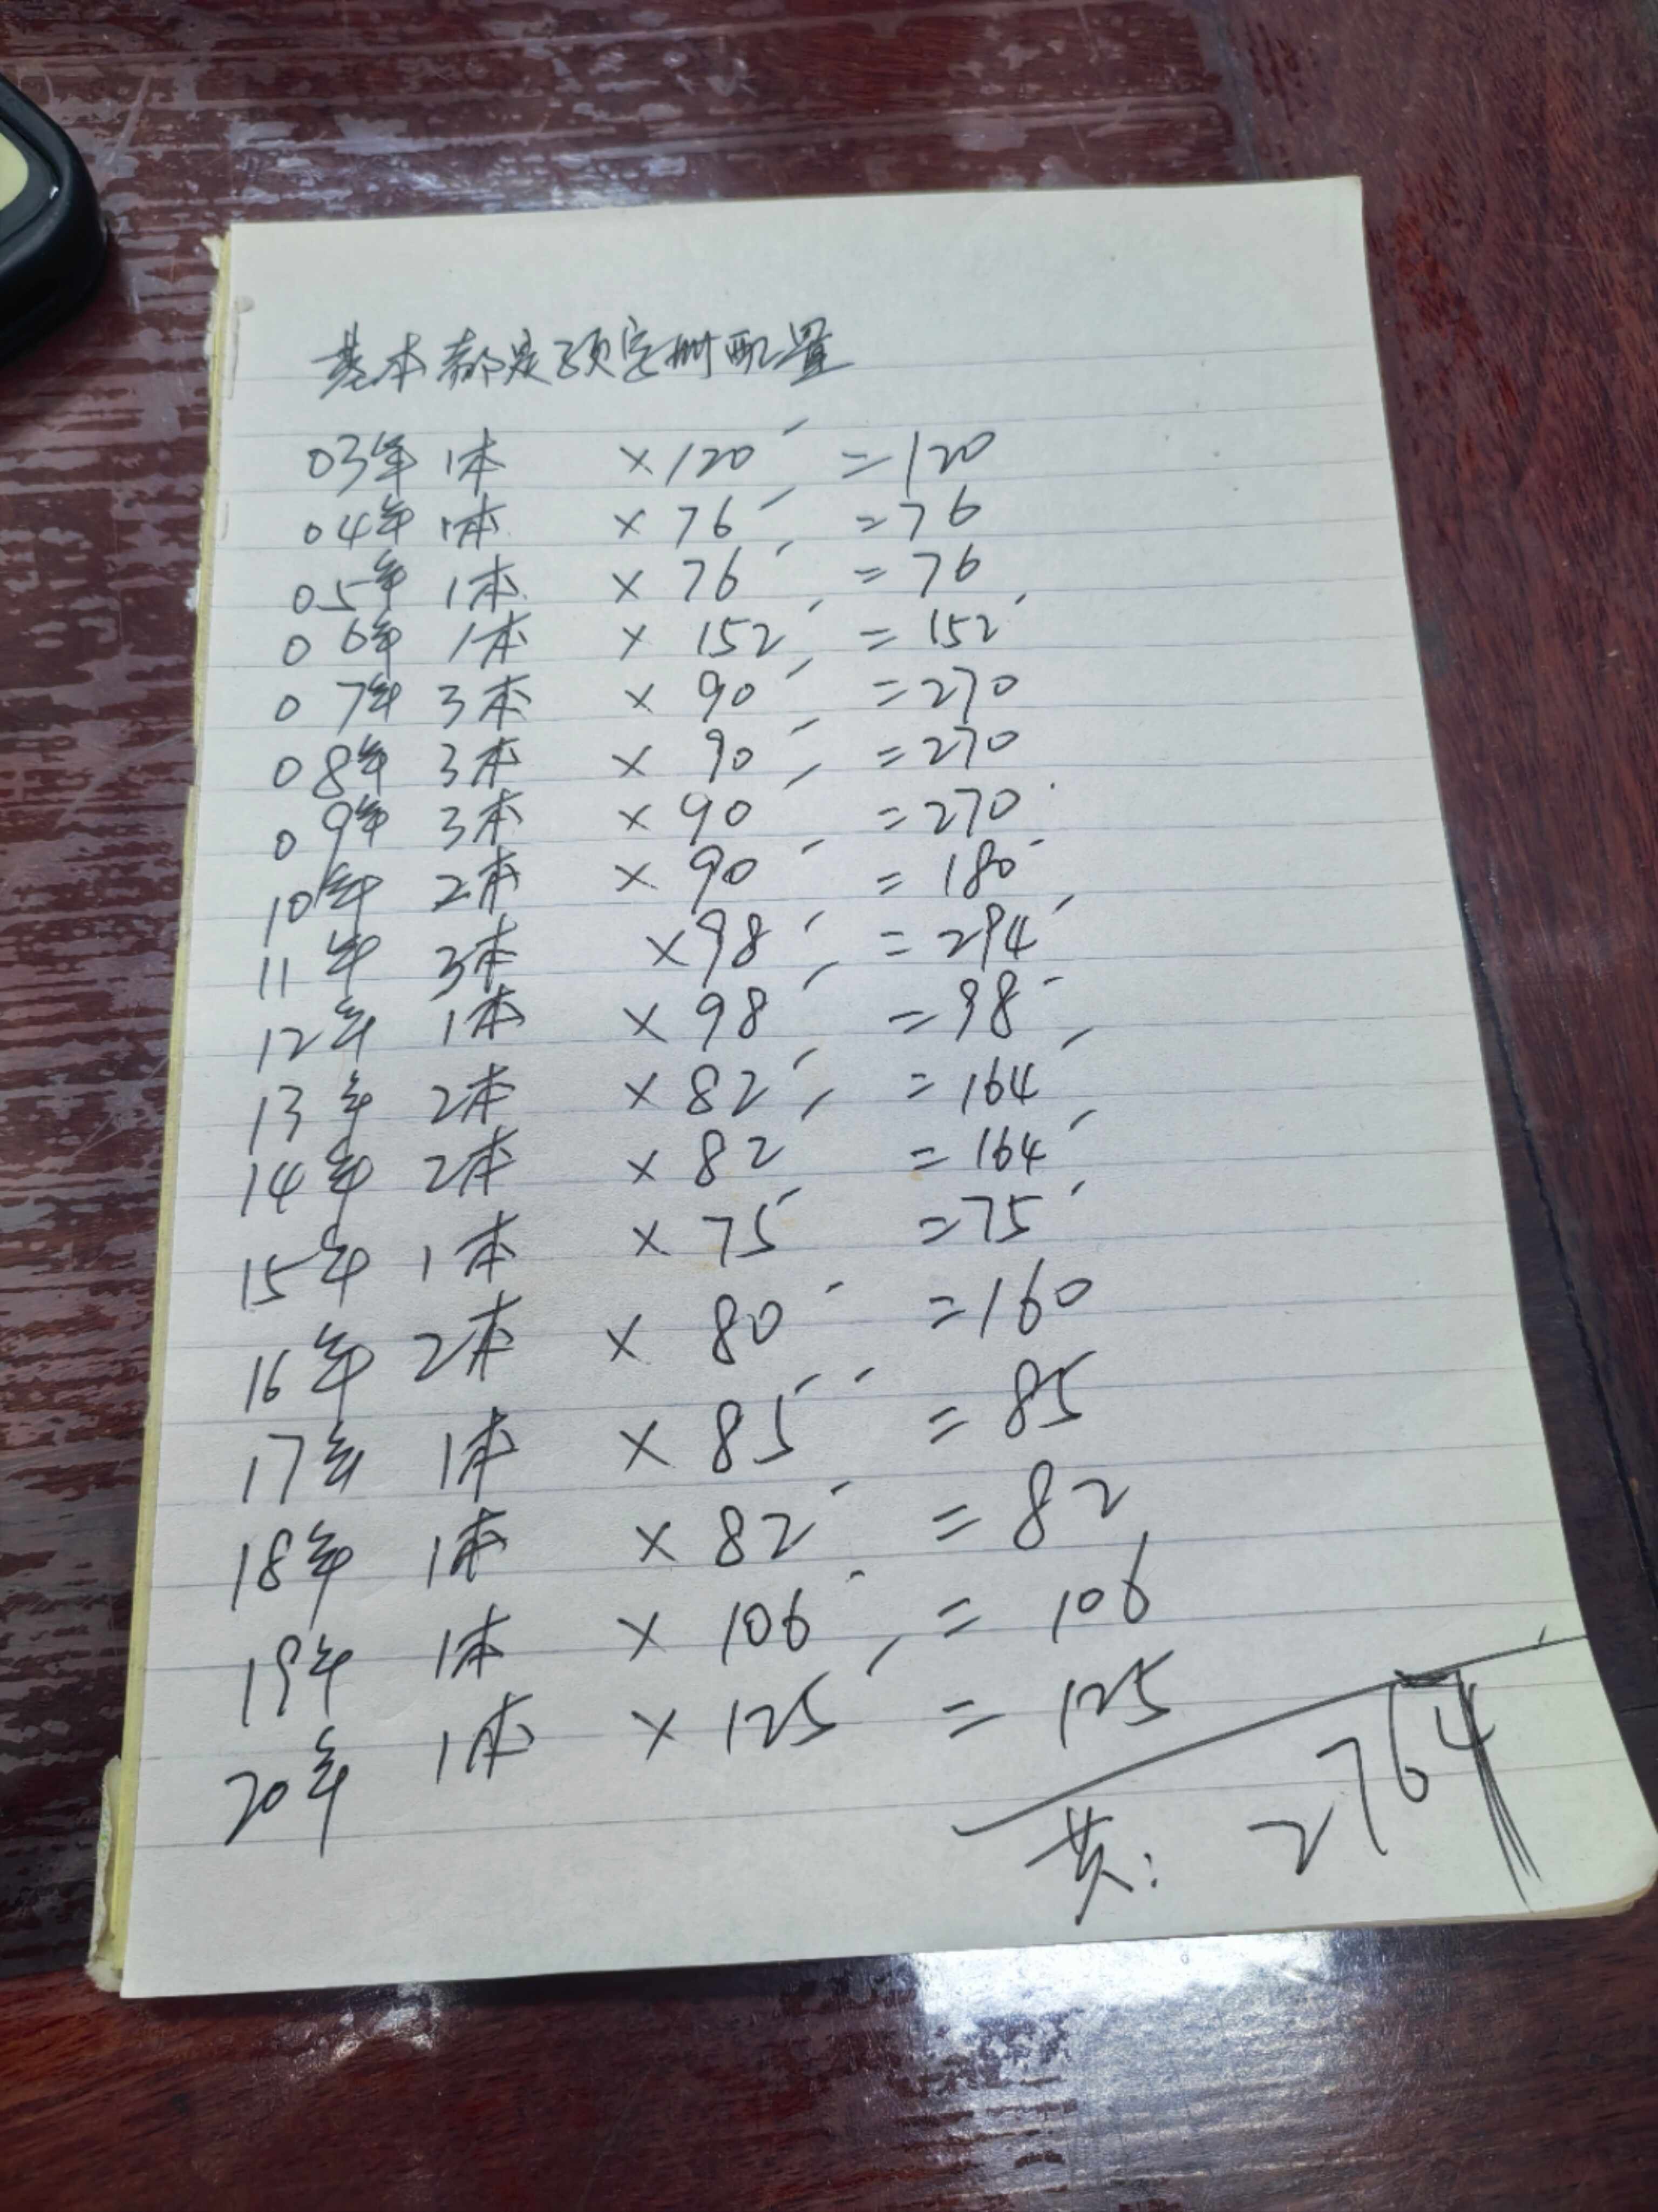 基本都是预定册配置
03年 1本 ×120 =120
04年 1本 ×76 =76
05年 1本 ×76 =76
06年 1本 ×152 =152
07年 3本 ×90 =270
08年 3本 ×90 =270
09年 3本 ×90 =270
10年 2本 ×90 =180
11年 3本 ×98 =294
12年 1本 ×98 =98
13年 2本 ×82 =164
14年 2本 ×82 =164
15年 1本 ×75 =75
16年 2本 ×80 =160
17年 1本 ×85 =85
18年 1本 ×82 =82
19年 1本 ×106 =106
20年 1本 ×125 =125
共: 2764